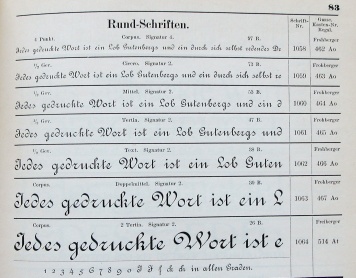 83
Rund-Schriften.
Schrift-Nr.
Ganze Kasten-Nr. Regal.
4 Punkt. Corpus. Signatur 4. 97 B.
Jedes gedruckte Wort ist ein Lob Gutenbergs und ein durch sich selbst redendes De
1058
Frohberger
462 Ao
Cicero. Signatur 2. 71 B.
Jedes gedruckte Wort ist ein Lob Gutenbergs und ein durch sich selbst re
1059
Frohberger
463 Ao
Mittel. Signatur 2. 55 B.
Jedes gedruckte Wort ist ein Lob Gutenbergs und ein d
1060
Frohberger
464 Ao
Tertia. Signatur 2. 47 B.
Jedes gedruckte Wort ist ein Lob Gutenbergs und
1061
Frohberger
465 Ao
Text. Signatur 2. 38 B.
Jedes gedruckte Wort ist ein Lob Guten
1062
Frohberger
466 Ao
Corpus. Doppelmittel. Signatur 2. 30 B.
Jedes gedruckte Wort ist ein L
1063
Frohberger
467 Ao
Corpus. 2 Tertia. Signatur 2. 26 B.
Jedes gedruckte Wort ist e
1064
Freiberger
514 At
1 2 3 4 5 6 7 8 9 0
in allen Graden.